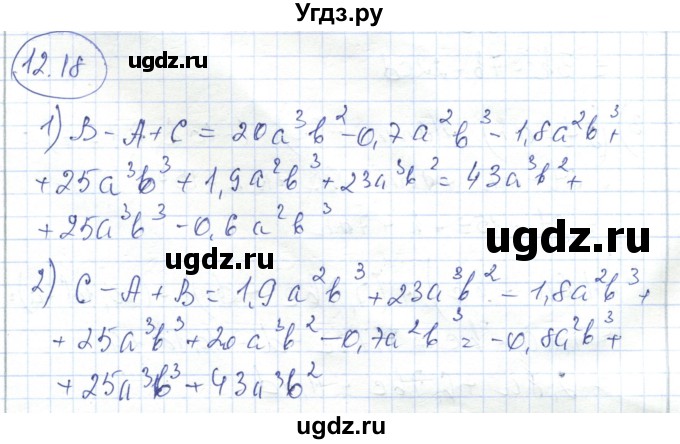 Угдз.ру
12.18
ugdz.ru
ugdz.ru
1) B - A + C = 20a³b² - 0,7a²b³ - 1,8a²b³ +
+ 25a³b³ + 1,9a²b³ + 23a³b² = 43a³b² +
+ 25a³b³ - 0,6a²b³
ugdz.ru
2) C - A + B = 1,9a²b³ + 23a³b² - 1,8a²b³ +
+ 25a³b³ + 20a³b² - 0,7a²b³ = -0,8a²b³ +
+ 25a³b³ + 43a³b²
ugdz.ru
ugdz.ru
Угдз.ру